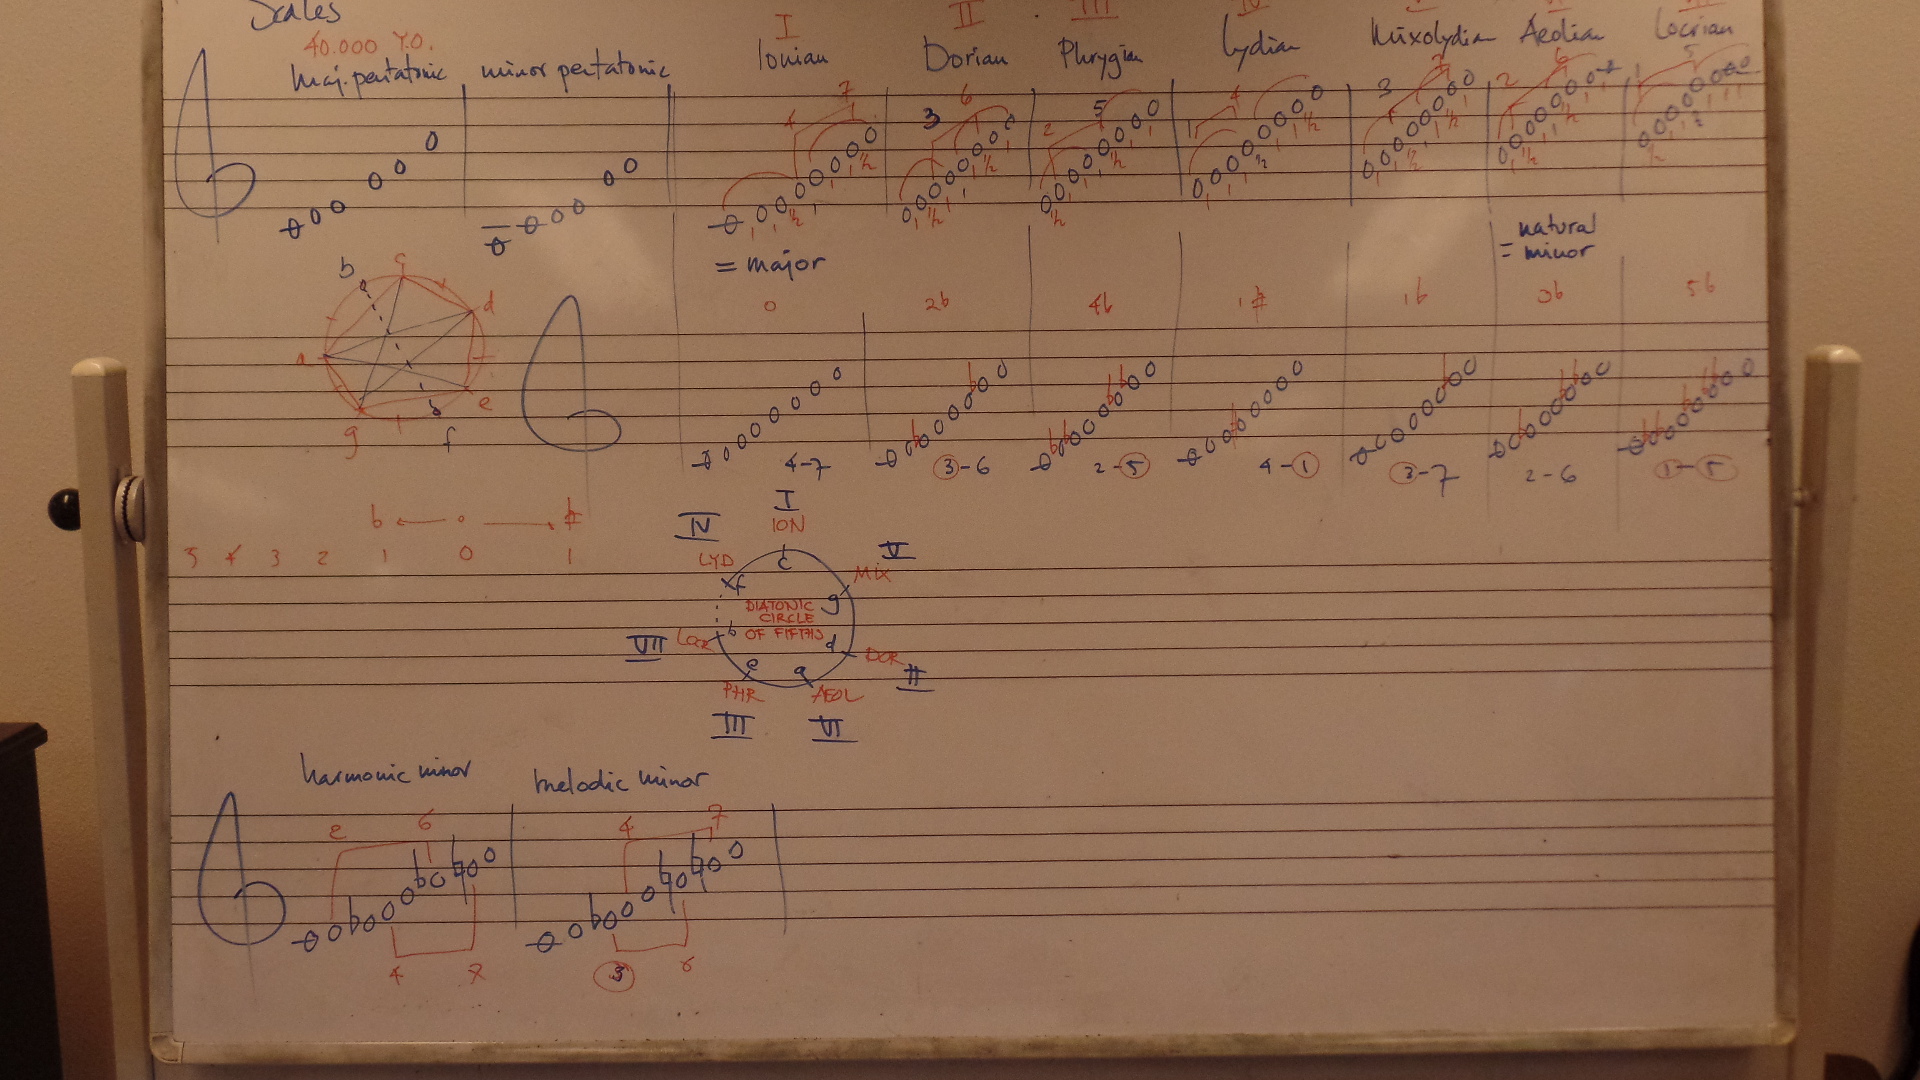 Scales
I II III IV
40.000 Y.O.
Maj. pentatonic minor pentatonic Ionian Dorian Phrygian Lydian Mixolydian Aeolian Locrian
4 7 3 6 2 5 1 4 3 7 2 6 1 5
= major
= natural minor
0 2b 4b 1# 1b 3b 5b
b c d e f g a
4-7 3-6 2-5 4-1 3-7 2-6 1-5
b ← 0 → #
5 4 3 2 1 0 1
I
ION
IV
LYD
V
MIX
c
f
g
DIATONIC
CIRCLE
OF FIFTHS
VII
Locr
b
d
DOR
II
e
a
PHR
AEOL
III
VI
harmonic minor melodic minor
2 6 4 7
4 7 3 6